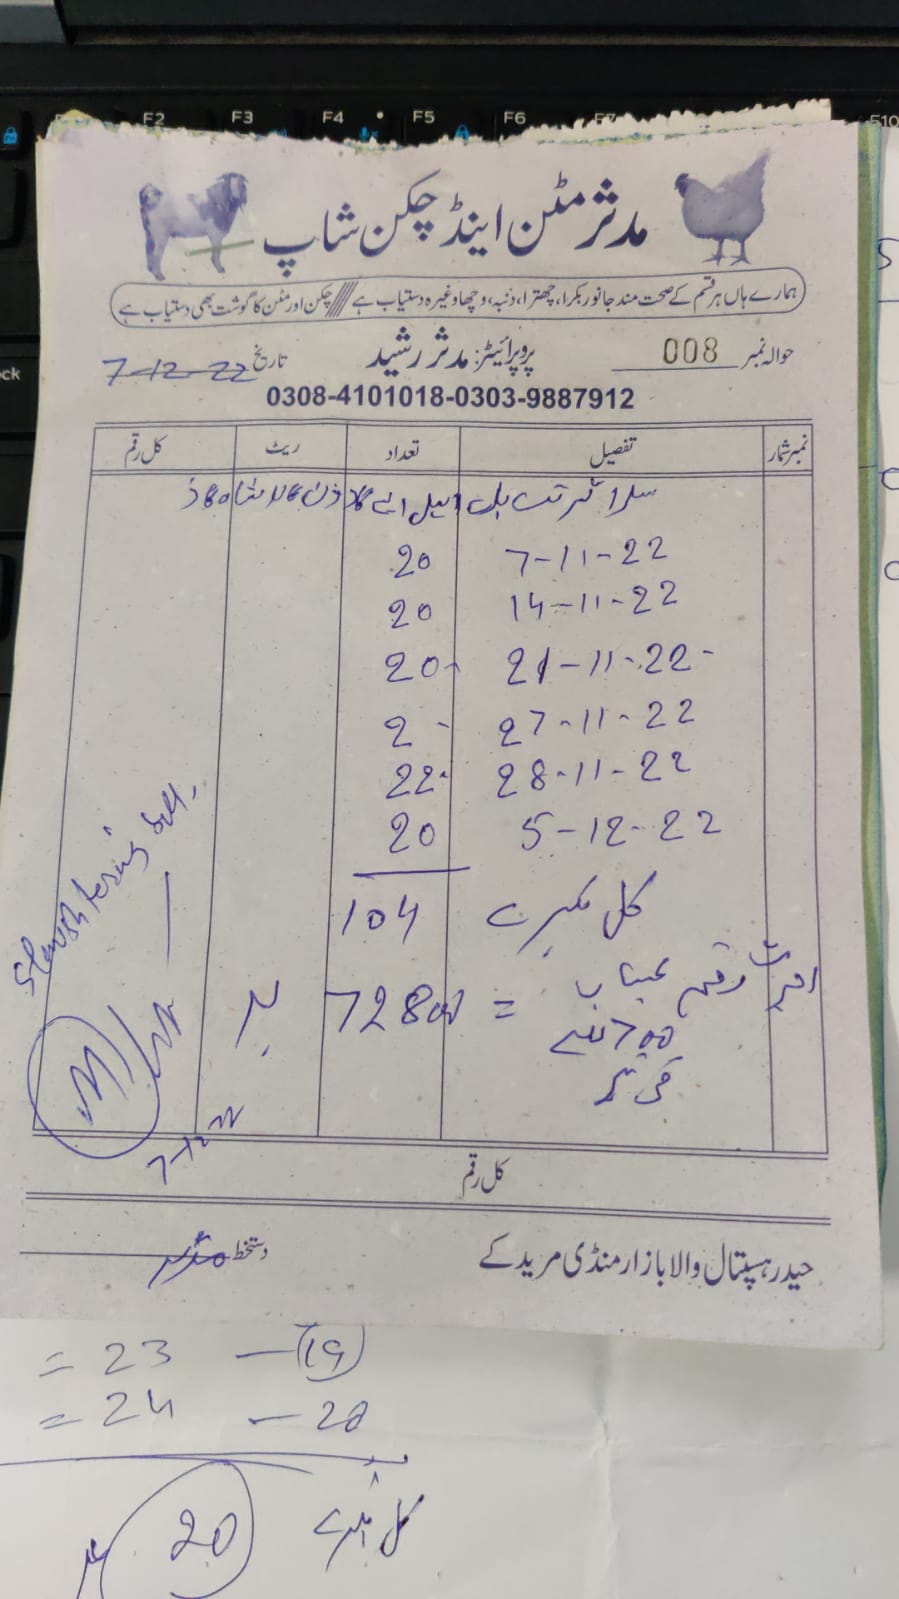 F2 F3 F4 F5 F6 F7 F10
مدثر مٹن اینڈ چکن شاپ
ہمارے ہاں ہر قسم کے صحت مند جانور بکرا، چھترا، دنبہ، وچھا وغیرہ دستیاب ہے //// چکن اور مٹن کا گوشت بھی دستیاب ہے
حوالہ نمبر 008 پروپرائیٹر: مدثر رشید تاریخ 7-12-22
0308-4101018-0303-9887912
نمبر شمار تفصیل تعداد ریٹ کل رقم
7-11-22 20
14-11-22 20
21-11-22 20
27-11-22 2
28-11-22 22
5-12-22 20
کل بکرے 104
رقم بحساب = 72800
700
فی بکرا
Slaughtering bill.
7-12-22
کل رقم
حیدر ہسپتال والا بازار منڈی مریدکے دستخط مدثر
= 23 - 19
= 24 - 20
کل
20